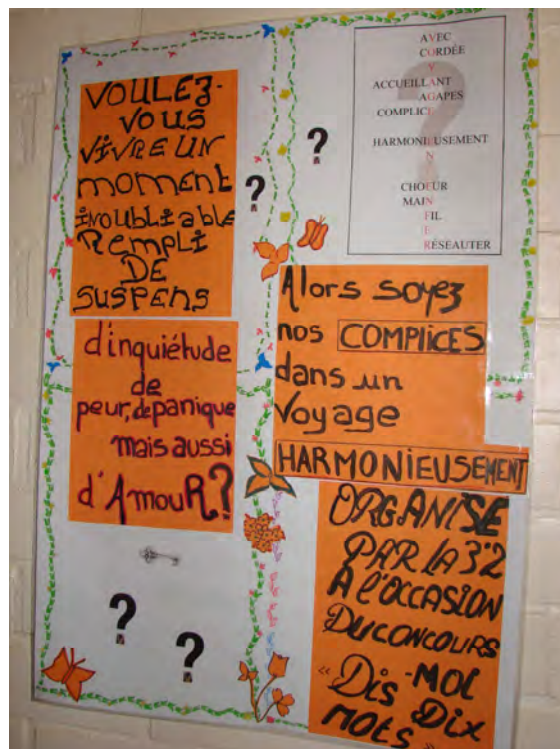 VOULEZ-
VOUS
VIVRE UN
MOMENT
INOUBLIABLE
REMPLI
DE
SUSPENS
d'inquiétude
de
peur, de panique
mais aussi
d'AmouR?
?
?
?
?
AVEC
CORDÉE
Y
ACCUEILLANT
AGAPES
COMPLICE
HARMONIEUSEMENT
N
CHOEUR
MAIN
FIL
E
RÉSEAUTER
?
Alors soyez
nos COMPLICES
dans un
Voyage
HARMONIEUSEMENT
ORGANISE
PAR LA 3°2
A l'OCCASION
DU CONCOURS
« Dis-MOI
Dix
MOTS »